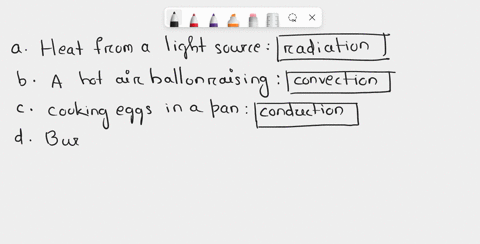 a. Heat from a light source: radiation
b. A hot air ballon raising: convection
c. cooking eggs in a pan: conduction
d. Bur